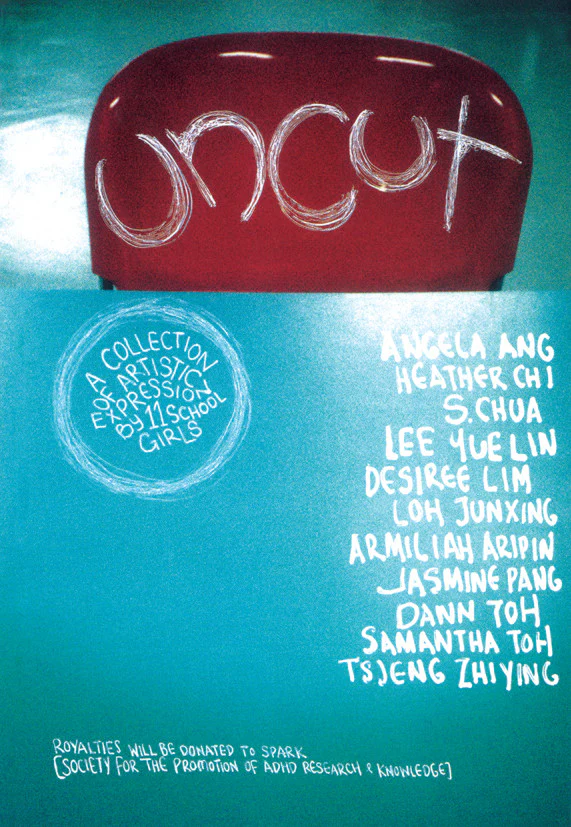 uncut
A COLLECTION
OF ARTISTIC
EXPRESSION
BY 11 SCHOOL
GIRLS
ANGELA ANG
HEATHER CHI
S. CHUA
LEE YUE LIN
DESIREE LIM
LOH JUNXING
ARMILIAH ARIPIN
JASMINE PANG
DANN TOH
SAMANTHA TOH
TSJENG ZHIYING
ROYALTIES WILL BE DONATED TO SPARK
[SOCIETY FOR THE PROMOTION OF ADHD RESEARCH & KNOWLEDGE]